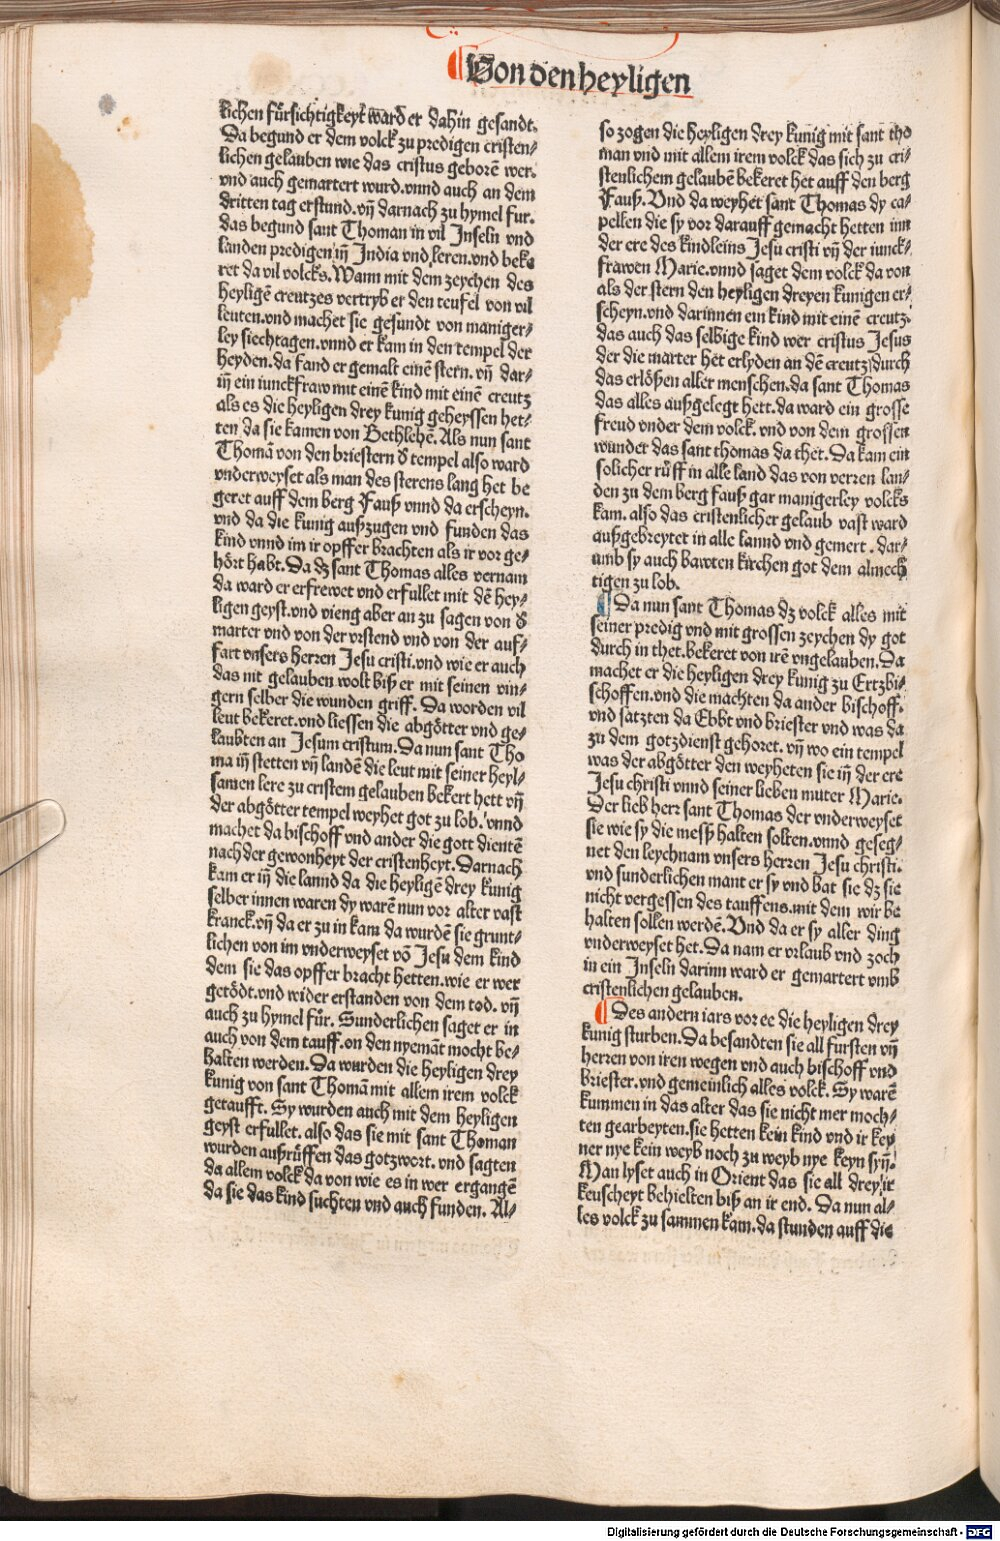 Von den heyligen
lichen fürsichtigkeyt ward er dahin gesandt.
Da begund er dem volck zu predigen cristen/
lichen gelauben wie das cristus geborē wer.
vnd auch gemartert wurd. vnnd auch an dem
dritten tag erstund. vñ darnach zu hymel fur.
das begund sant Thoman in vil Inseln vnd
landen predigen iñ India vnd leren. vnd beke
ret da vil volcks. Wann mit dem zeychen des
heyligē creutzes vertryb er den teufel von vil
leuten. vnd machet sie gesundt von maniger/
ley siechtagen. vnnd er kam in den tempel der
heyden. da fand er gemalt einē stern. vñ dar/
iñ ein iunckfraw mit einē kind mit einē creutz
als es die heyligen drey kunig geheyssen het/
ten da sie kamen von Bethlehē. Als nun sant
Thomā von den briestern d̕ tempel also ward
vnderweyset als man des sterens lang het be
geret auff dem berg Fauß vnnd da erscheyn.
vnd da die kunig außzugen vnd funden das
kind vnnd im ir opffer brachten als ir vor ge/
hört habt. Da dz sant Thomas alles vernam
da ward er erfrewet vnd erfullet mit dē hey/
ligen geyst. vnd vieng aber an zu sagen von d̕
marter vnd von der vrstend vnd von der auf/
fart vnsers herren Jesu cristi. vnd wie er auch
das nit gelauben wolt biß er mit seinen vin/
gern selber die wunden griff. Da worden vil
leut bekeret. vnd liessen die abgötter vnd ge/
laubten an Jesum cristum. Da nun sant Tho
ma iñ stetten vñ landē die leut mit seiner heyl/
samen lere zu cristem gelauben bekert hett vñ
der abgötter tempel weyhet got zu lob. vnnd
machet da bischoff vnd ander die gott dientē
nach der gewonheyt der cristenheyt. Darnach
kam er iñ die lannd da die heyligē drey kunig
selber innen waren dy warē nun vor alter vast
kranck. vñ da er zu in kam da wurdē sie grunt/
lichen von im vnderweyset vō Jesu dem kind
dem sie das opffer bracht hetten. wie er wer
getödt. vnd wider erstanden von dem tod. vñ
auch zu hymel fůr. Sunderlichen saget er in
auch von dem tauff. on den nyemāt mocht be/
halten werden. Da wurden die heyligen drey
kunig von sant Thomā mit allem irem volck
getaufft. Sy wurden auch mit dem heyligen
geyst erfullet. also das sie mit sant Thoman
wurden außrůffen das gotzwort. vnd sagten
da allem volck da von wie es in wer ergangē
da sie das kind suchten vnd auch funden. Al/
so zogen die heyligen drey kunig mit sant tho
man vnd mit allem irem volck das sich zu cri/
stenlichem gelaubē bekeret het auff den berg
Fauß. Vnd da weyhet sant Thomas dy ca/
pellen die sy vor darauff gemacht hetten inn
der ere des kindleins Jesu cristi vñ der iunck/
frawen Marie. vnnd saget dem volck da von
als der stern den heyligen dreyen kunigen er/
scheyn. vnd darinnen ein kind mit einē creutz.
das auch das selbige kind wer cristus Jesus
der die marter het erlyden an dē creutz durch
das erlößen aller menschen. da sant Thomas
das alles außgelegt hett. da ward ein grosse
freud vnder dem volck. vnd von dem grossen
wunder das sant thomas da thet. Da kam ein
solicher rüff in alle land das von verren lan/
den zu dem berg fauß gar manigerley volcks
kam. also das cristenlicher gelaub vast ward
außgebreytet in alle lannd vnd gemert. dar/
umb sy auch bawten kirchen got dem almech
tigen zu lob.
Da nun sant Thomas dz volck alles mit
seiner predig vnd mit grossen zeychen dy got
durch in thet. bekeret von irē vngelauben. Da
machet er die heyligen drey kunig zu Ertzbi/
schoffen. vnd die machten da ander bischoff.
vnd satzten da Ebbt vnd briester vnd was da
zu dem gotzdienst gehoret. vñ wo ein tempel
was der abgötter den weyheten sie iñ der ere
Jesu christi vnnd seiner lieben muter Marie.
Der lieb herr sant Thomas der vnderweyset
sie wie sy die messz halten solten. vnnd geseg/
net den leychnam vnsers herren Jesu christi.
vnd sunderlichen mant er sy vnd bat sie dz sie
nicht vergessen des tauffens. mit dem wir be
halten sollen werdē. Vnd da er sy aller ding
vnderweyset het. Da nam er vrlaub vnd zoch
in ein Inseln darinn ward er gemartert vmb
cristenlichen gelauben.
Des andern iars vor ee die heyligen drey
kunig sturben. Da besandten sie all fursten vñ
herren von iren wegen vnd auch bischoff vnd
briester. vnd gemeinlich alles volck. Sy warē
kummen in das alter das sie nicht mer moch/
ten gearbeyten. sie hetten kein kind vnd ir key
ner nye kein weyb noch zu weyb nye keyn syñ.
Man lyset auch in Orient das sie all drey ir
keuscheyt behielten biß an ir end. Da nun al/
les volck zu sammen kam. da stunden auff die
Digitalisierung gefördert durch die Deutsche Forschungsgemeinschaft - DFG